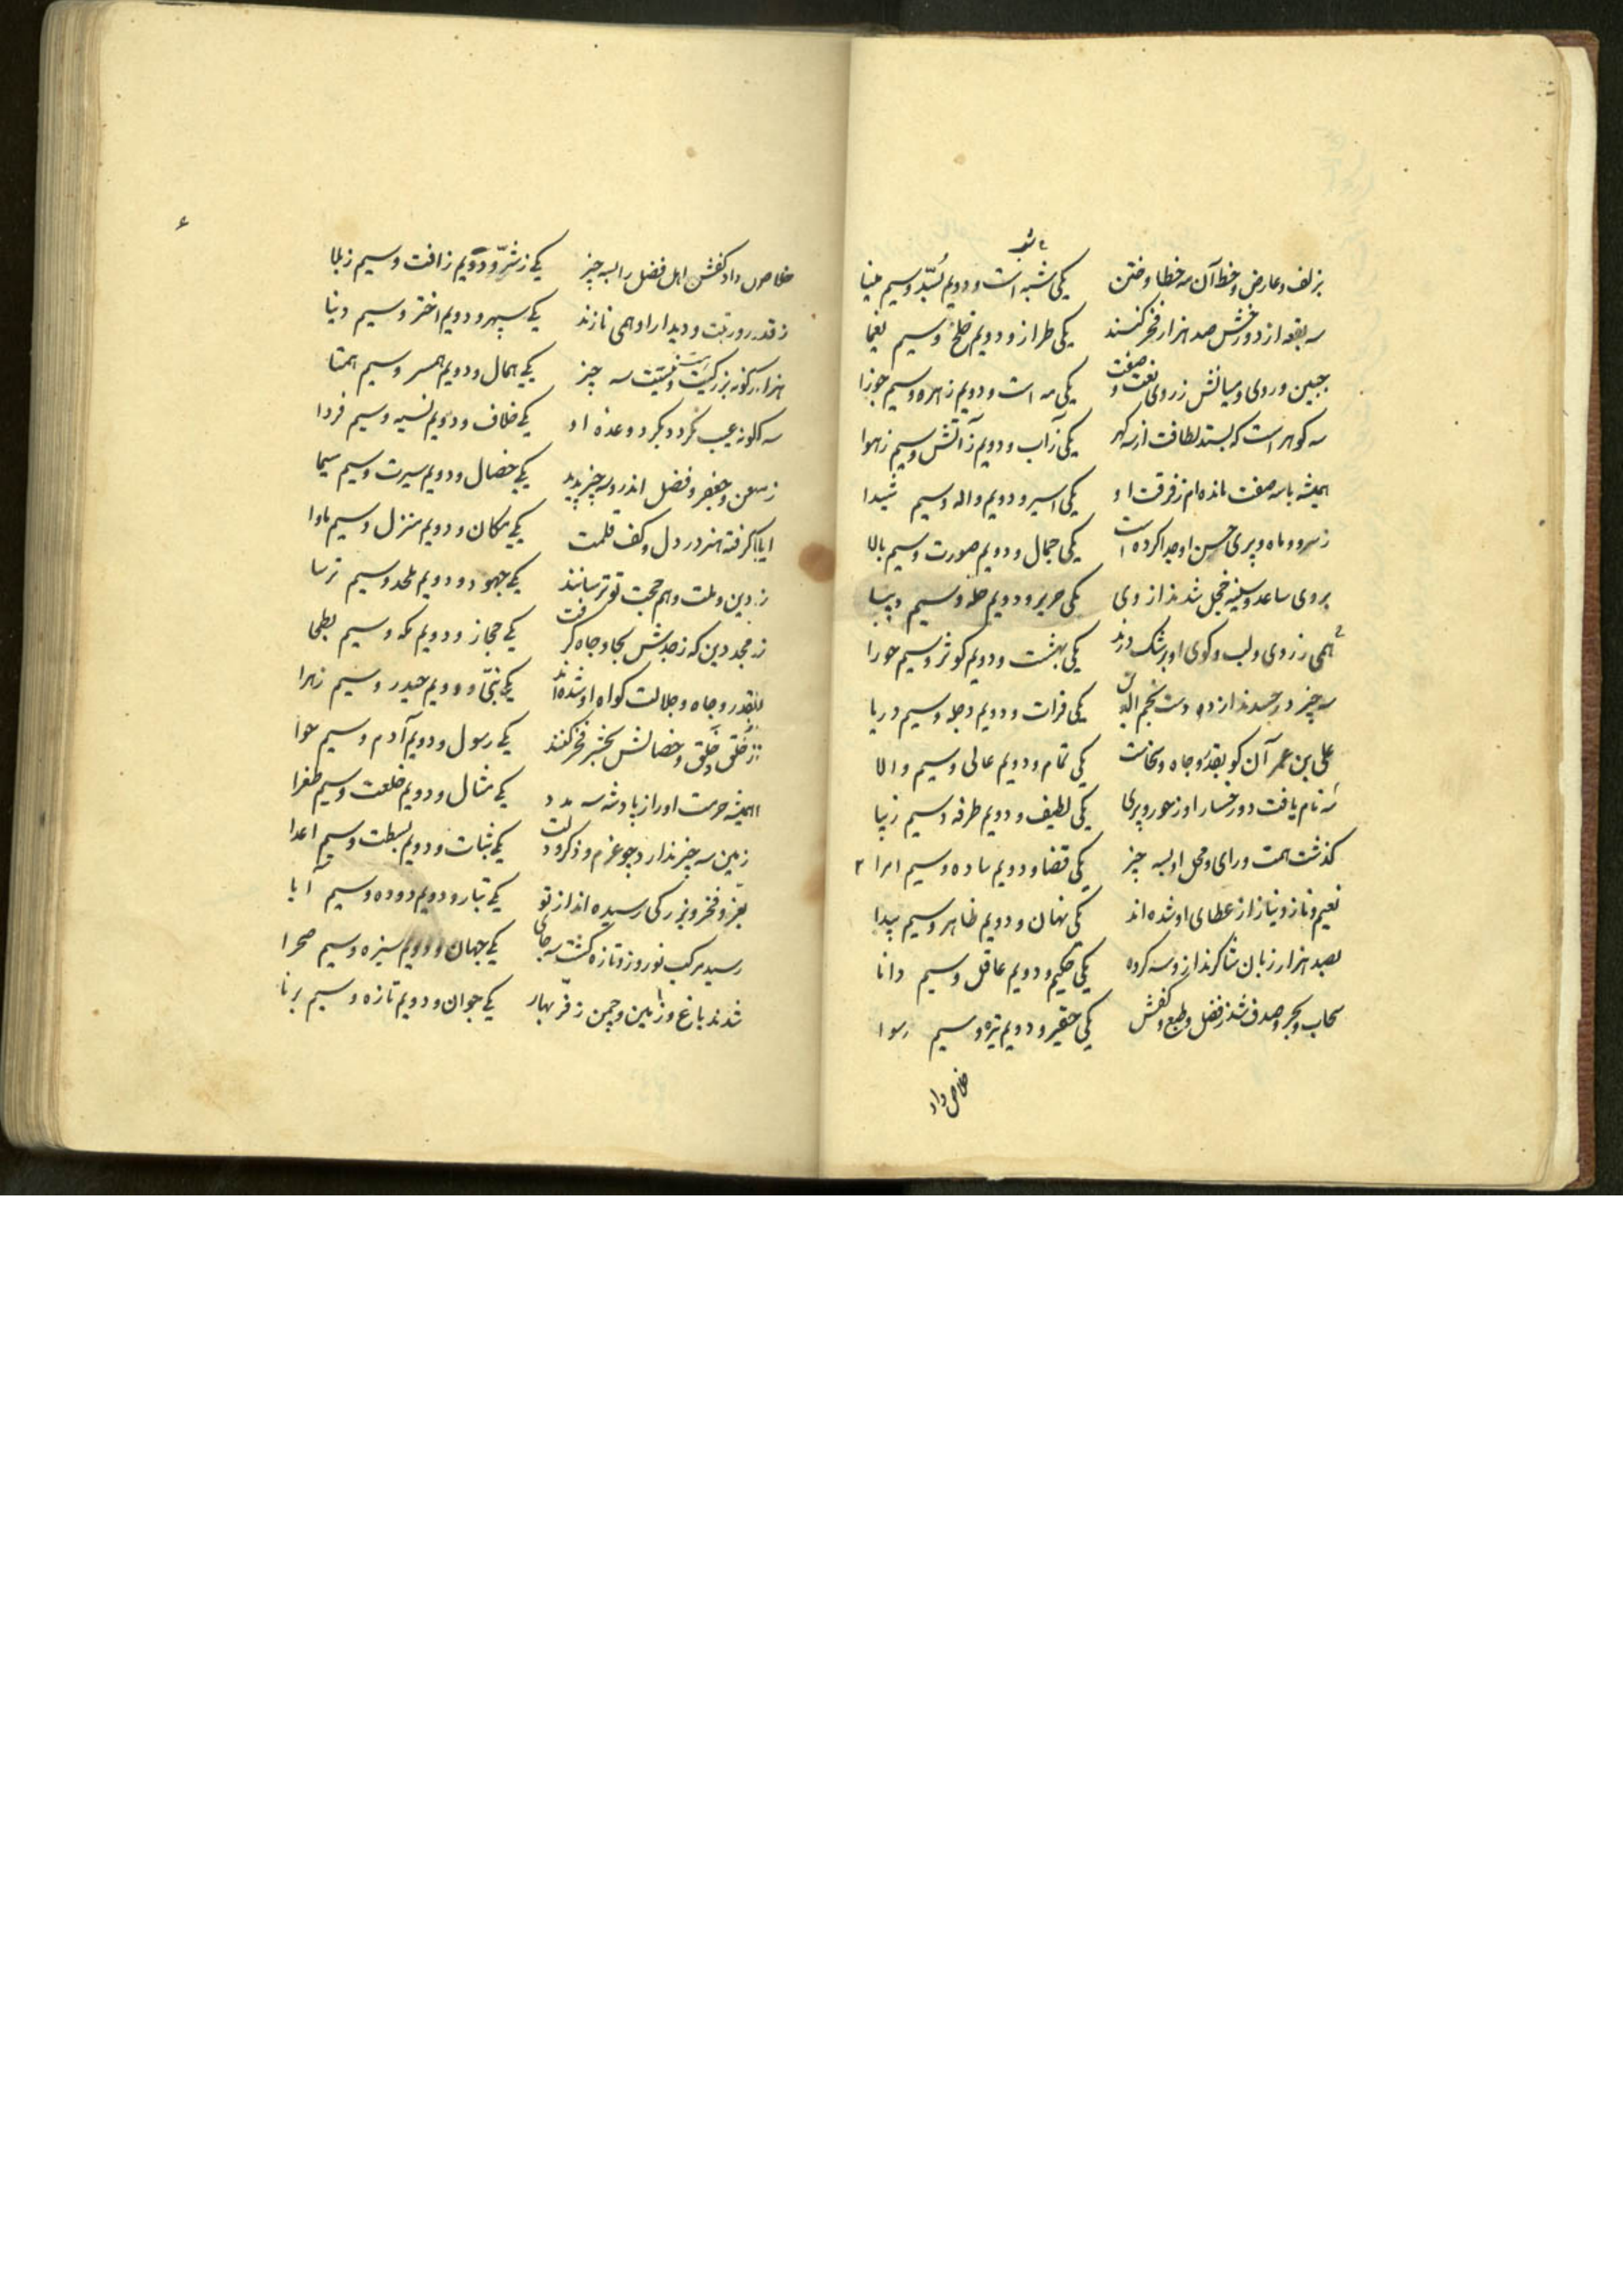 با شبه
بزلف و عارض و خط آن مه خطا و ختن یکی شبه است و دویم بُسّد و سیم مینا
سه بقعه از دو رخش صد هزار فخر کنند یکی طراز و دویم خلخ و سیم یغما
جبین و روی و میانش ز روی نعت و صفت یکی مه است و دویم زهره و سیم جوزا
سه کوهر است که بستد لطافت از سه کهر یکی ز آب و دویم ز آتش و سیم ز هوا
همیشه با سه صفت مانده‌ام ز فرقت او یکی اسیر و دویم واله و سیم شیدا
ز سرو و ماه و پری حسن او جدا کرده است یکی جمال و دویم صورت و سیم بالا
بروی ساعد و سینه خجل شدند از وی یکی حریر و دویم حله و سیم دیبا
همی ز روی و لب و کوی او برشک درند یکی بهشت و دویم کوثر و سیم حورا
سه چیز در حسدند از ده دست نجم الدین یکی فرات و دویم دجله و سیم دریا
علی بن عمر آن کو بقدر و جاه و سخاست یکی تمام و دویم عالی و سیم والا
سه نام یافت دو رخسار او ز حور و پری یکی لطیف و دویم طرفه و سیم زیبا
کذشت همت و رای و محل او بسه چیز یکی قضا و دویم ساده و سیم امرا ۲
نعیم و ناز و نیاز از عطای او شده‌اند یکی نهان و دویم ظاهر و سیم پیدا
بصد هزار زبان شاکرند ازو سه کروه یکی حکیم و دویم عاقل و سیم دانا
سحاب و بحر و صدف شد ز فضل و طبع و کفش یکی حقیر و دویم تیره و سیم رسوا
خلاص داد
۶
خلاص داد کفش اهل فضل را بسه چیز یکی ز شرّ و دویم ز افت و سیم ز بلا
ز قدر و رتبت و دیدار او همی نازند یکی سپهر و دویم اختر و سیم دنیا
هزار کونه بزرکیست و نیست سه چیز یکی همال و دویم همسر و سیم همتا
سه کونه عیب نکردد بکرد وعده او یکی خلاف و دویم نسیه و سیم فردا
ز معن و جعفر و فضل اندرو سه چیز پدید یکی خصال و دویم سیرت و سیم سیما
ایا کرفته هنر در دل و کف قلمت یکی مکان و دویم منزل و سیم ماوا
ز دین و ملت و هم حجت تو ترسانند یکی جهود و دویم ملحد و سیم ترسا
ز مجد دین که ز جدش بجا و جاه کرفت یکی حجاز و دویم مکه و سیم بطحا
بقدر و جاه و جلالت کواه او شده‌اند یکی نبیّ و دویم حیدر و سیم زهرا
ز خُلق و خَلق و خصالش بحشر فخر کنند یکی رسول و دویم آدم و سیم حوا
همیشه حرمت او را ز پادشه سه مدد یکی مثال و دویم خلعت و سیم طغرا
زمین سه چیز ندارد چو عزم و ذکر و دلت یکی ثبات و دویم بسطت و سیم اعدا
بعزّ و فخر و بزرکی رسیده‌اند از تو یکی تبار و دویم دوده و سیم آبا
رسید مرکب نوروز و تازه کشت سه جای یکی جهان و دویم سبزه و سیم صحرا
شدند باغ و زمین و چمن ز فرّ بهار یکی جوان و دویم تازه و سیم برنا